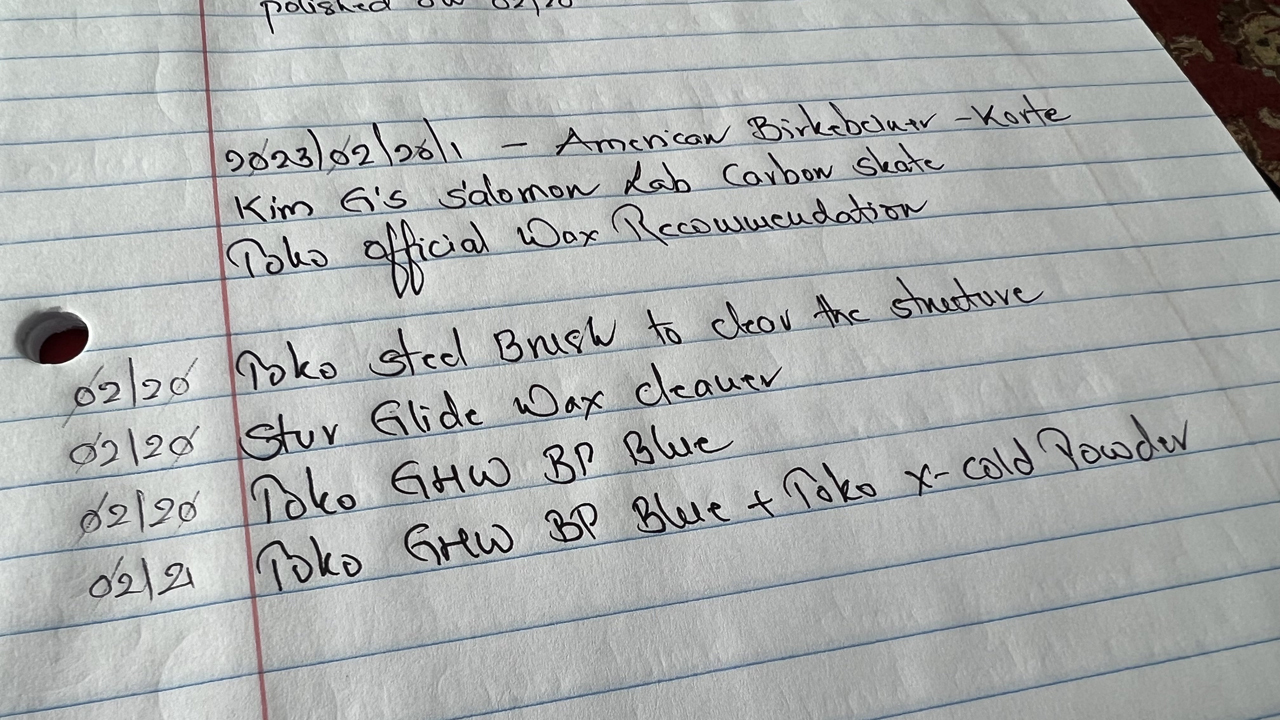 polished on 02/20
2023/02/20/1 - American Birkebeiner - Korte
Kim G's Salomon Lab Carbon Skate
Toko official Wax Recommendation
02/20 Toko Steel Brush to clear the structure
02/20 Star Glide Wax cleaner
02/20 Toko GHW BP Blue
02/21 Toko GHW BP Blue + Toko x-cold Powder